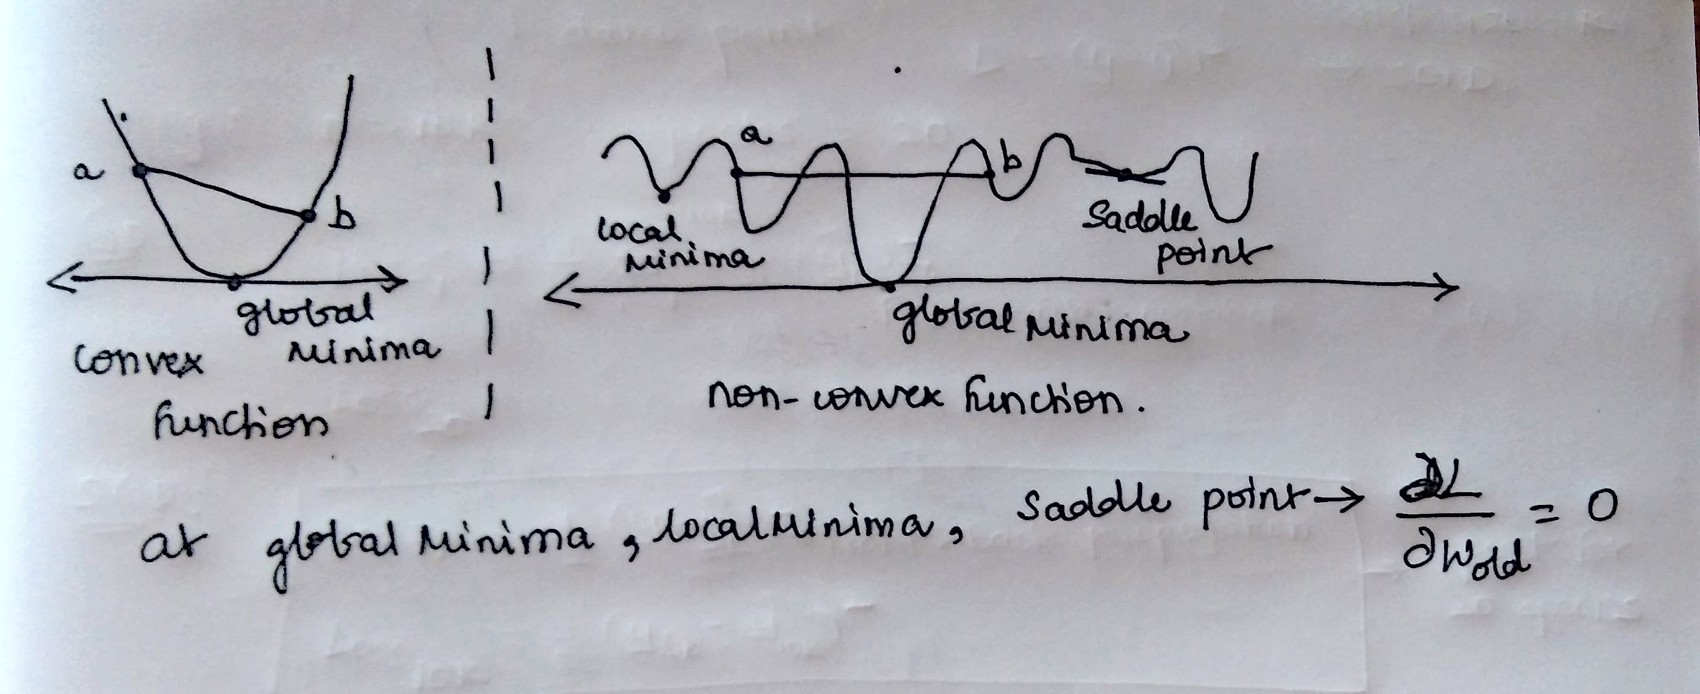 a
b
global
minima
convex
function
a
b
local
minima
saddle
point
global minima
non-convex function.
at global minima, local minima, saddle point → ∂L/∂Wold = 0